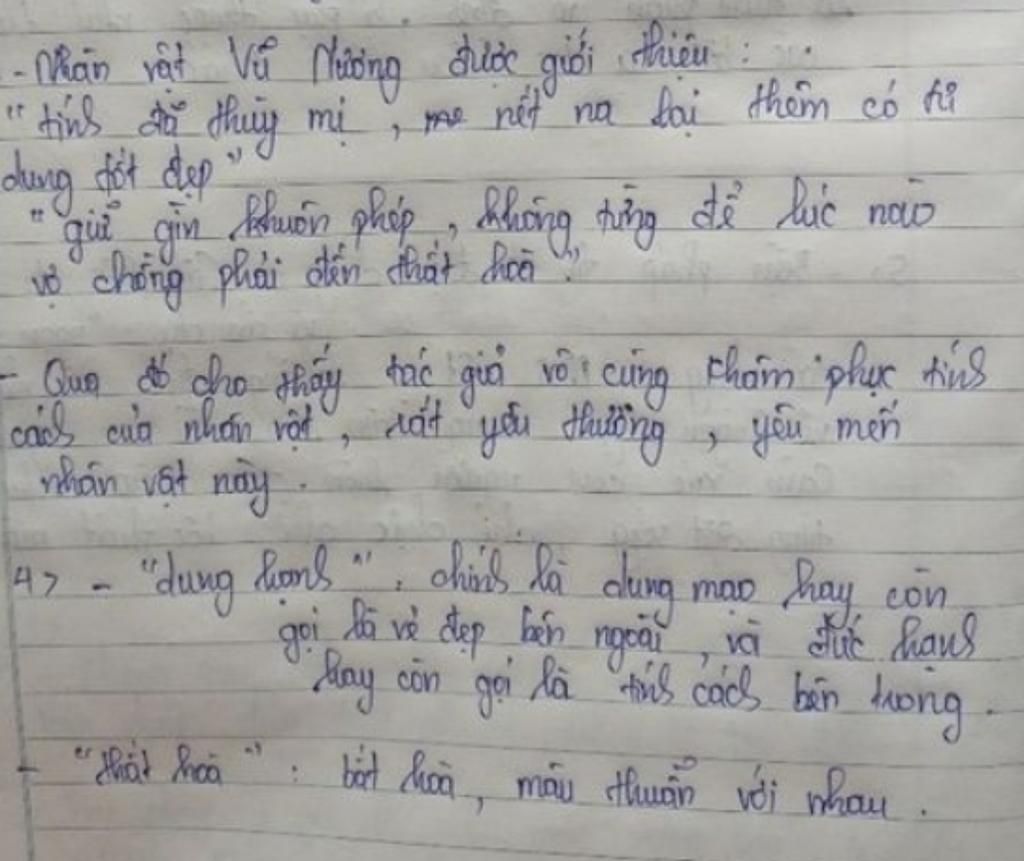 - Nhân vật Vũ Nương được giới thiệu :
"tính đã thùy mị, nết na lại thêm có tư
dung tốt đẹp"
"giữ gìn khuôn phép, không từng để lúc nào
vợ chồng phải đến thất hoà".
- Qua đó cho thấy tác giả vô cùng khâm phục tính
cách của nhân vật, rất yêu thương, yêu mến
nhân vật này.
4> - "dung hạnh", chính là dung mạo hay còn
gọi là vẻ đẹp bên ngoài, và đức hạnh
hay còn gọi là tính cách bên trong.
- "thất hoà" : bất hoà, mâu thuẫn với nhau.